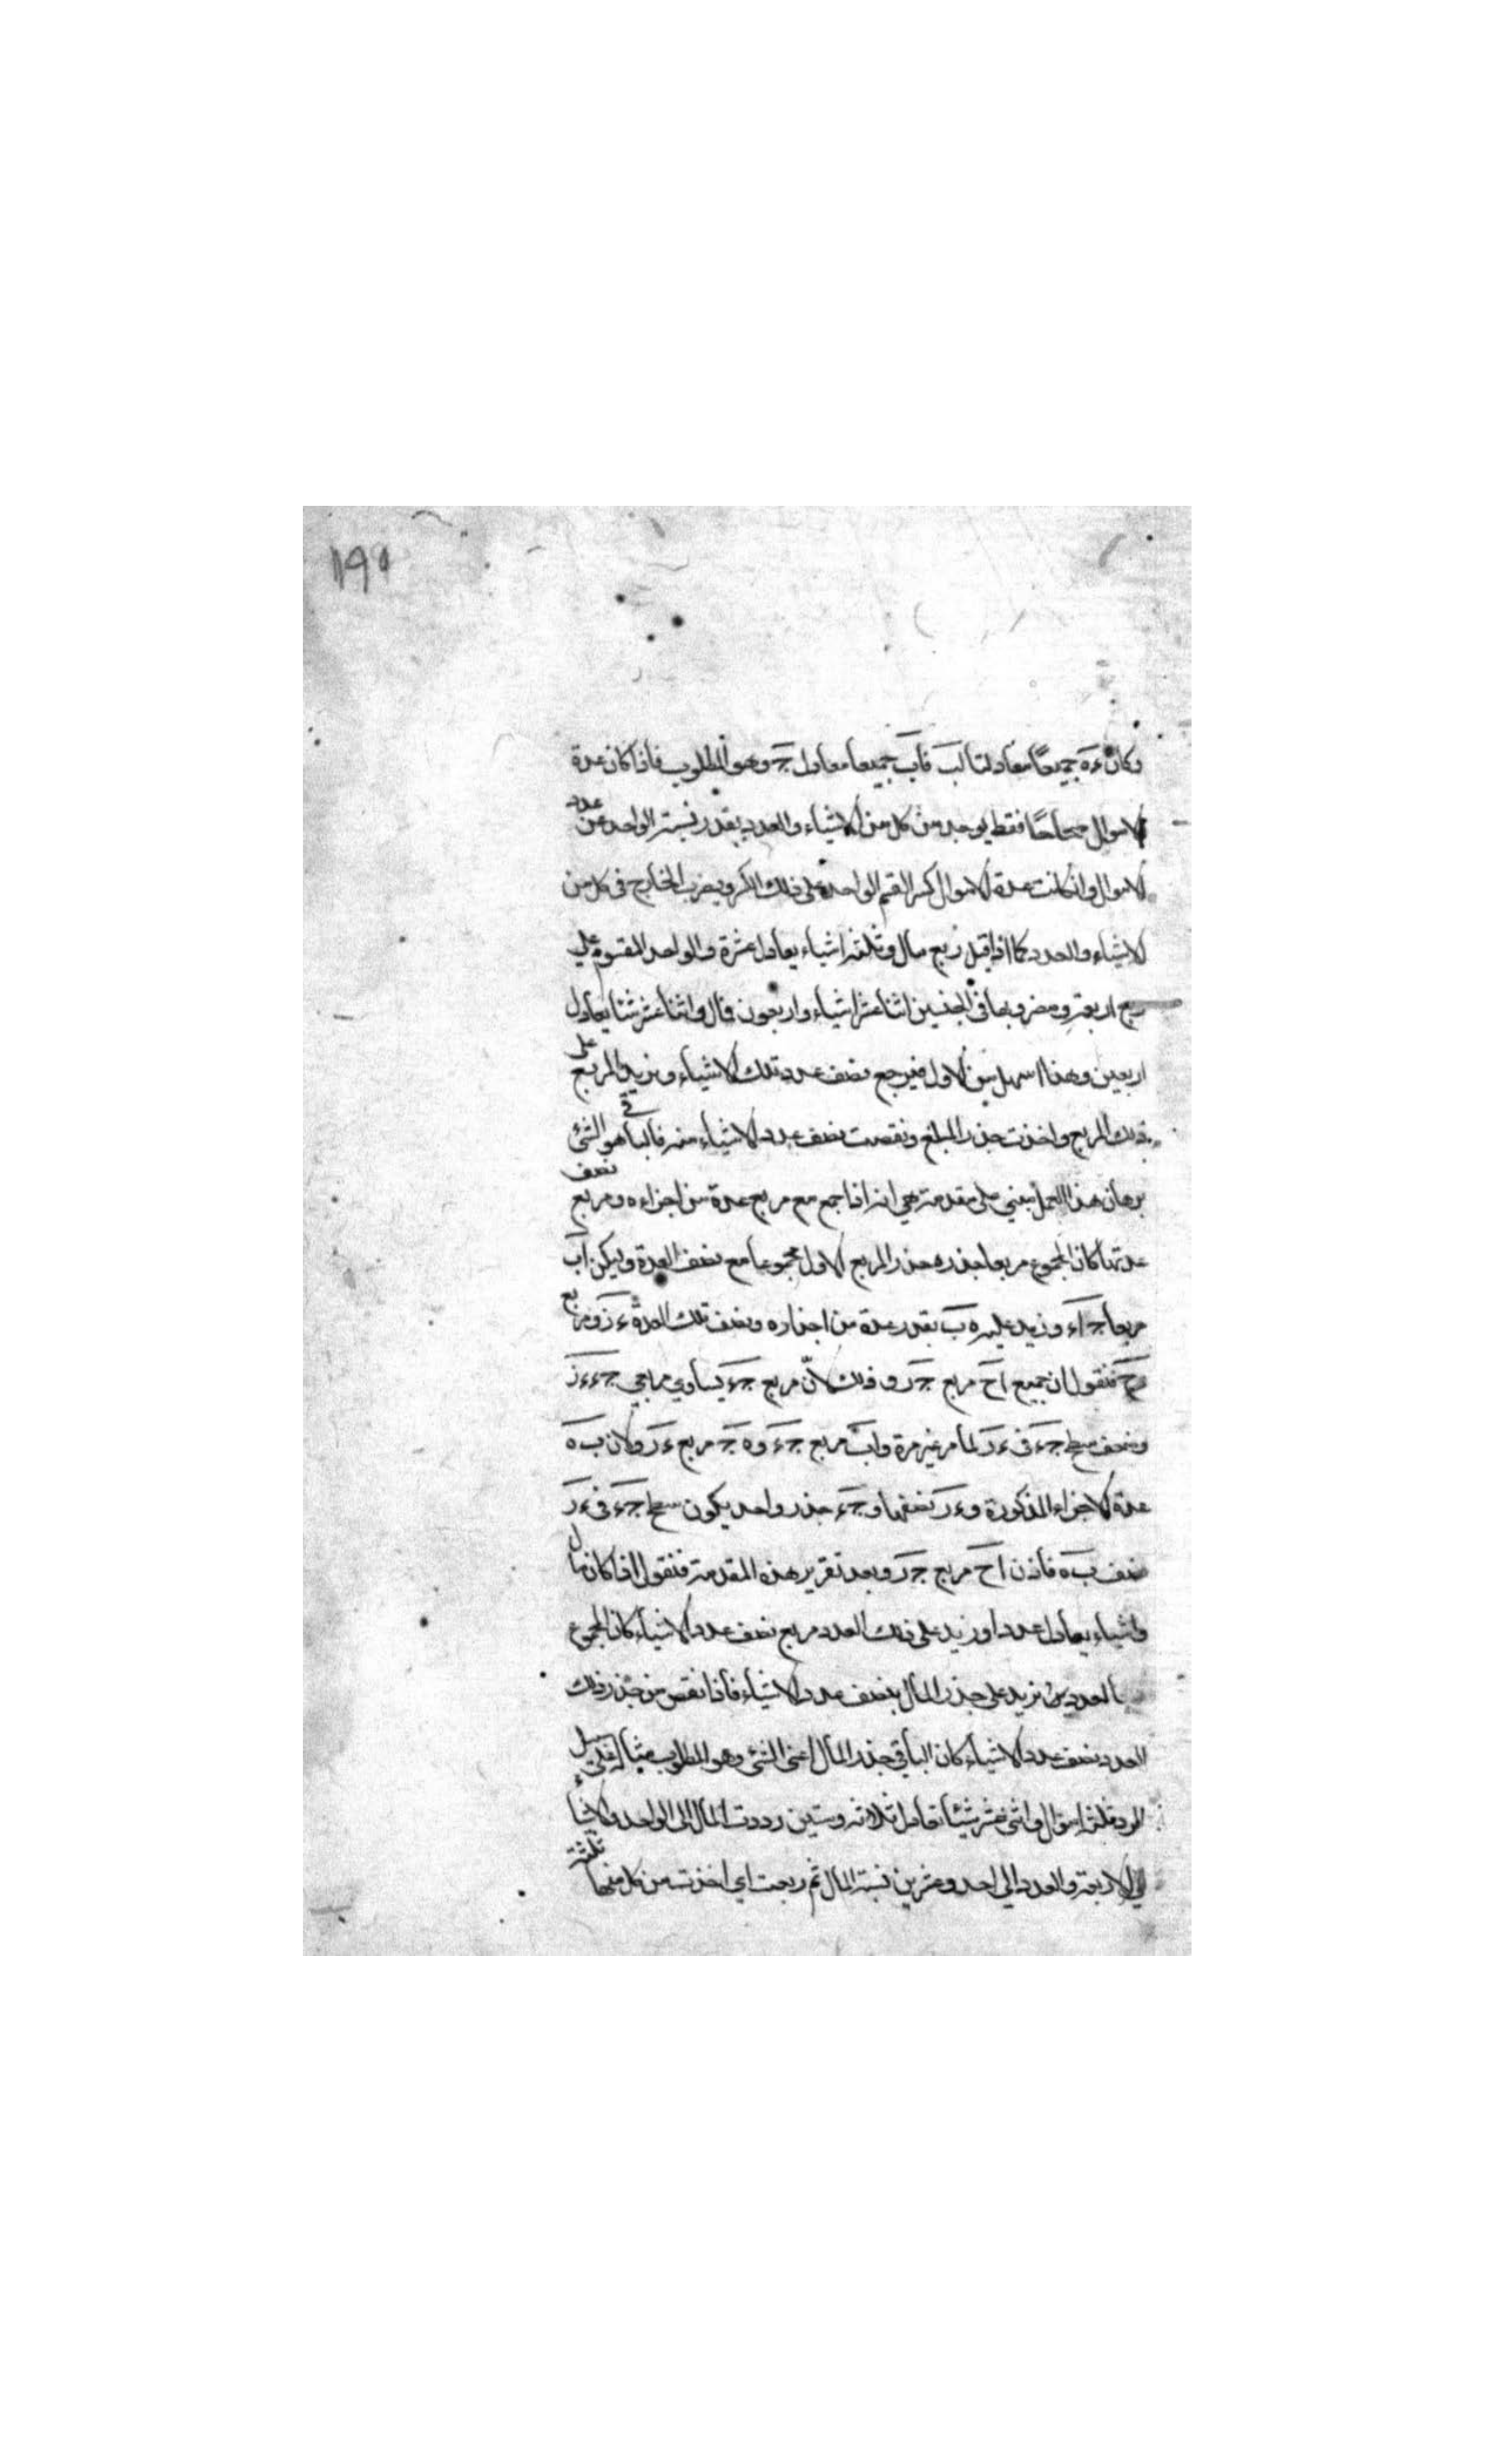 ١٩١
وكان ءه جميعا معادلتا لب فاب جميعا معادل جـ وهو المطلوب فاذا كان عدة
الاموال صحاحا فقط يوجد من كل من الاشياء والعدد بقدر نسبة الواحد من عدد
الاموال وان كانت عدة الاموال كسرا نقسم الواحد على ذلك الكسر ويضرب الخارج فى كل من
الاشياء والعدد كما اذا قيل ربع مال وثلثة اشياء يعادل عشرة والواحد المقسوم على
ربع اربعة ومضروبها فى الجنسين اثنا عشر اشياء واربعون فمال واثنا عشر شئا يعادل
اربعين وهذا اسهل من الاول فيرجع نصف عدد تلك الاشياء ونزيد المربع على
ذلك المربع واخذت جذر المبلغ ونقصت نصف عدد الاشياء منه فالباقى هو الشئ
برهان هذا العمل مبني على مقدمة هي انه اذا جمع مع مربع عدة من اجزاءه ومربع نصف
عدتها كان المجموع مربعا جذره جذر المربع الاول مجموعا مع نصف العدة وليكن اب
مربعا جـ اء وزيد عليه ه ب بقدر عدة من اجذاره ونصف تلك العدة ء ز ومربع
فنقول ان جميع اح مربع جـ ز وذلك لان مربع جـ ء يساوي مربعي جـ ء ء ز
وضعف سطح جـ ء فى ء ز لما مر غير مرة واب مربع جـ ء و ه جـ مربع ء ز ولان ب ه
عدة الاجزاء المذكورة و ء ز نصفها و جـ ء جذر واحد يكون سطح جـ ء فى ء ز
نصف ب ه فاذن اح مربع جـ ز وبعد تقرير هذه المقدمة فنقول اذا كان مال
واشياء يعادل عددا وزيد على ذلك العدد مربع نصف عدد الاشياء كان المجموع
العددين يزيد على جذر المال بنصف عدد الاشياء فاذا نقص من جذر ذلك
العدد نصف عدد الاشياء كان الباقي جذر المال اعنى الشئ وهو المطلوب مثاله على سبيل
الرد ثلثة اموال واثنى عشر شيئا تعادل ثلاثة وستين رددت المال الى الواحد والاشياء
الى الاربعة والعدد الى احد وعشرين نسبة المال ثم ربعت اي اخذت من كل منها ثلثه